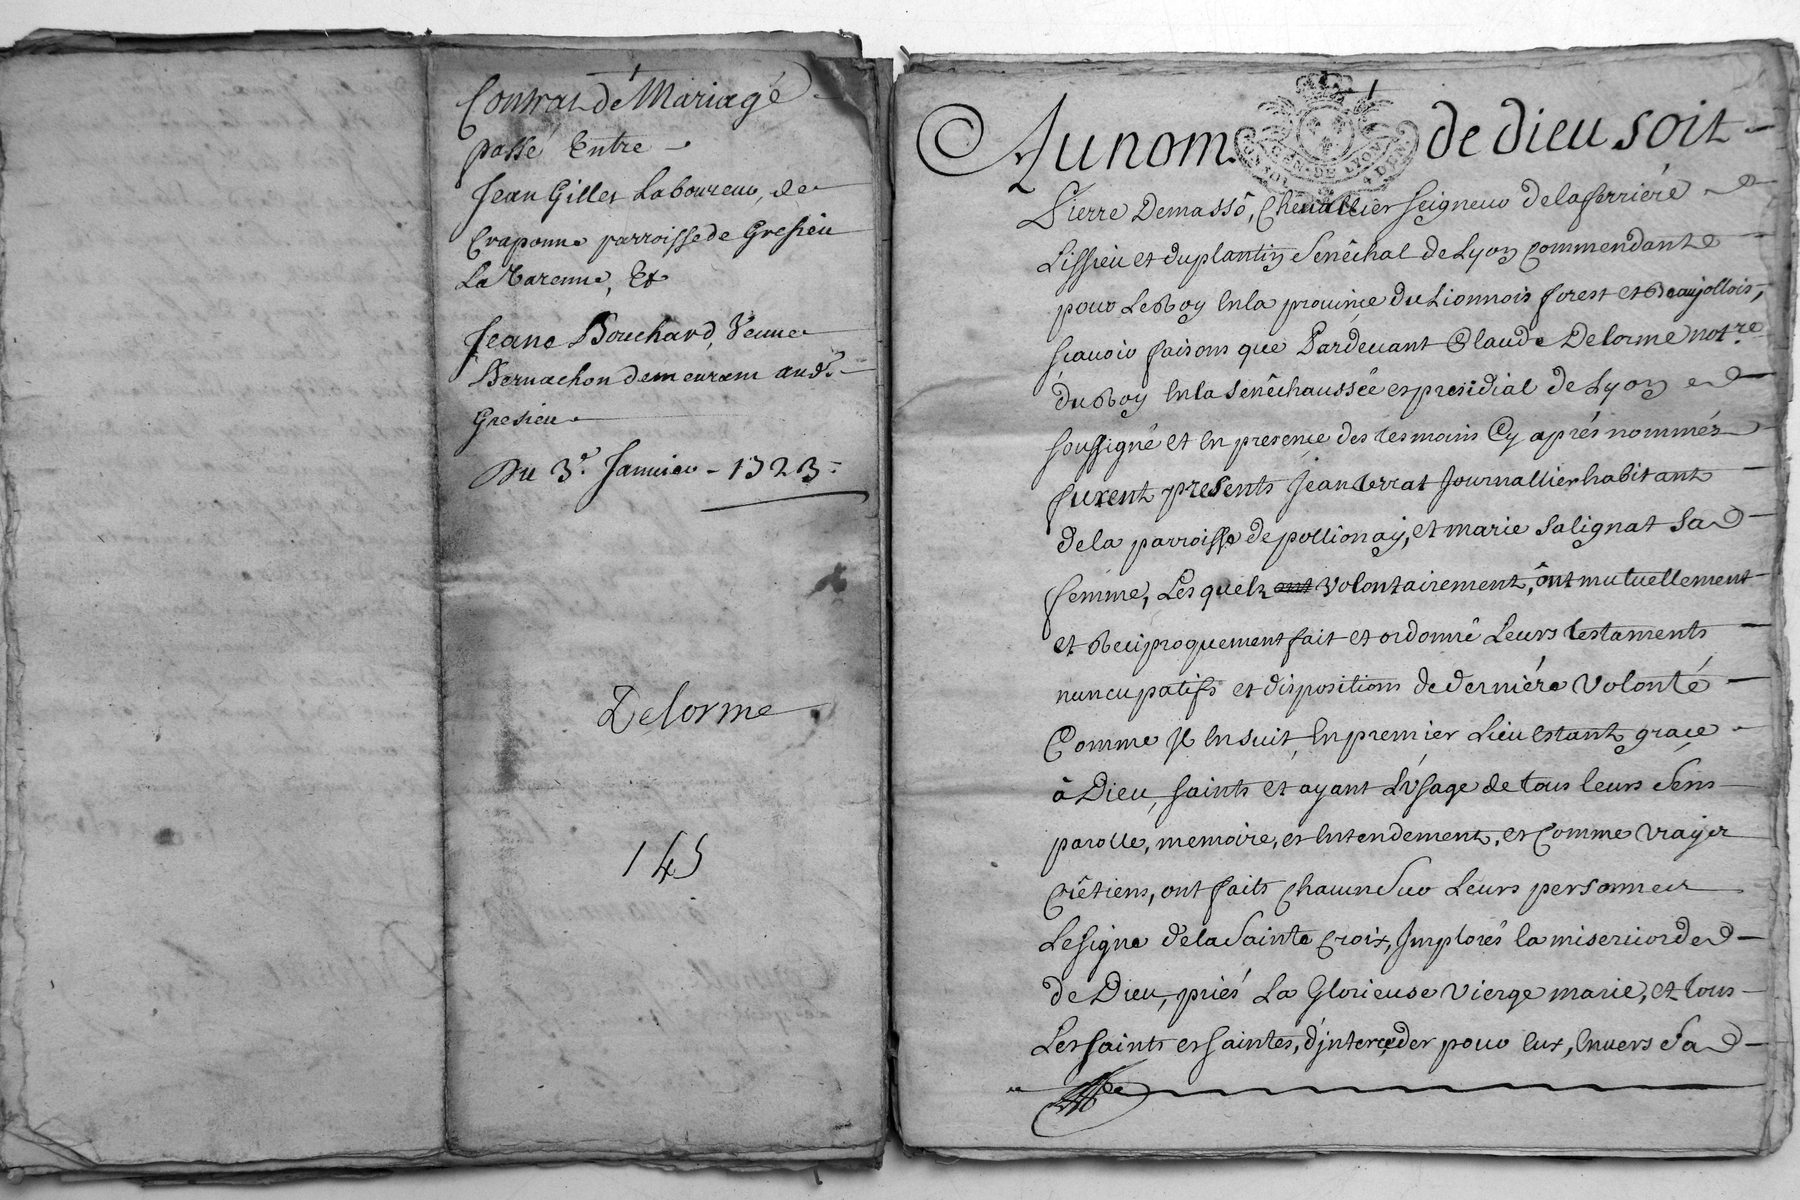 Contrat de Mariage
passé Entre
Jean Gilles Laboureur, de
Craponne parroisse de Gresieu
La Varenne, Et
Jeane Bouchard, Veuve
Bernachon demeurant aud.
Gresieu
Du 3e. Janvier 1723.
Delorme
145
Au nom de dieu soit
GEN. DE LYON
Pierre Demassô, Chevallier seigneur de la ferriére
Lissieu et du plantin Senêchal de Lyon Commendant
pour Le Roy En la province du Lionnois forest et Beaujollois,
scavoir faisons que Pardevant Claude Delorme notre.
du Roy En la Senêchaussée et presidial de Lyon
soussigné et En presençe des tesmoins Cy aprés nommés
furent presents Jean verrat Journallier habitant
de la parroisse de pollionay, et marie Salignat sa
femme, Les quels ont volontairement, ônt mutuellement
et Reciproquement fait et ordonné Leurs testaments
nuncupatifs et dispositions de derniére volonté
Comme Jl Ensuit, En premier Lieu Estant graçe
à Dieu, saints et ayant L'Usage de tous leurs Sens
parolle, memoire, et Entendement, et Comme vrays
Crêtiens, ont faits Chacun Sur Leurs personnes
Le signe de la Sainte Croix, Jmplorés la misericorde
de Dieu, priés La Glorieuse vierge marie, et tous
Les saints et saintes, d'jnterçeder pour Eux, Envers Sa